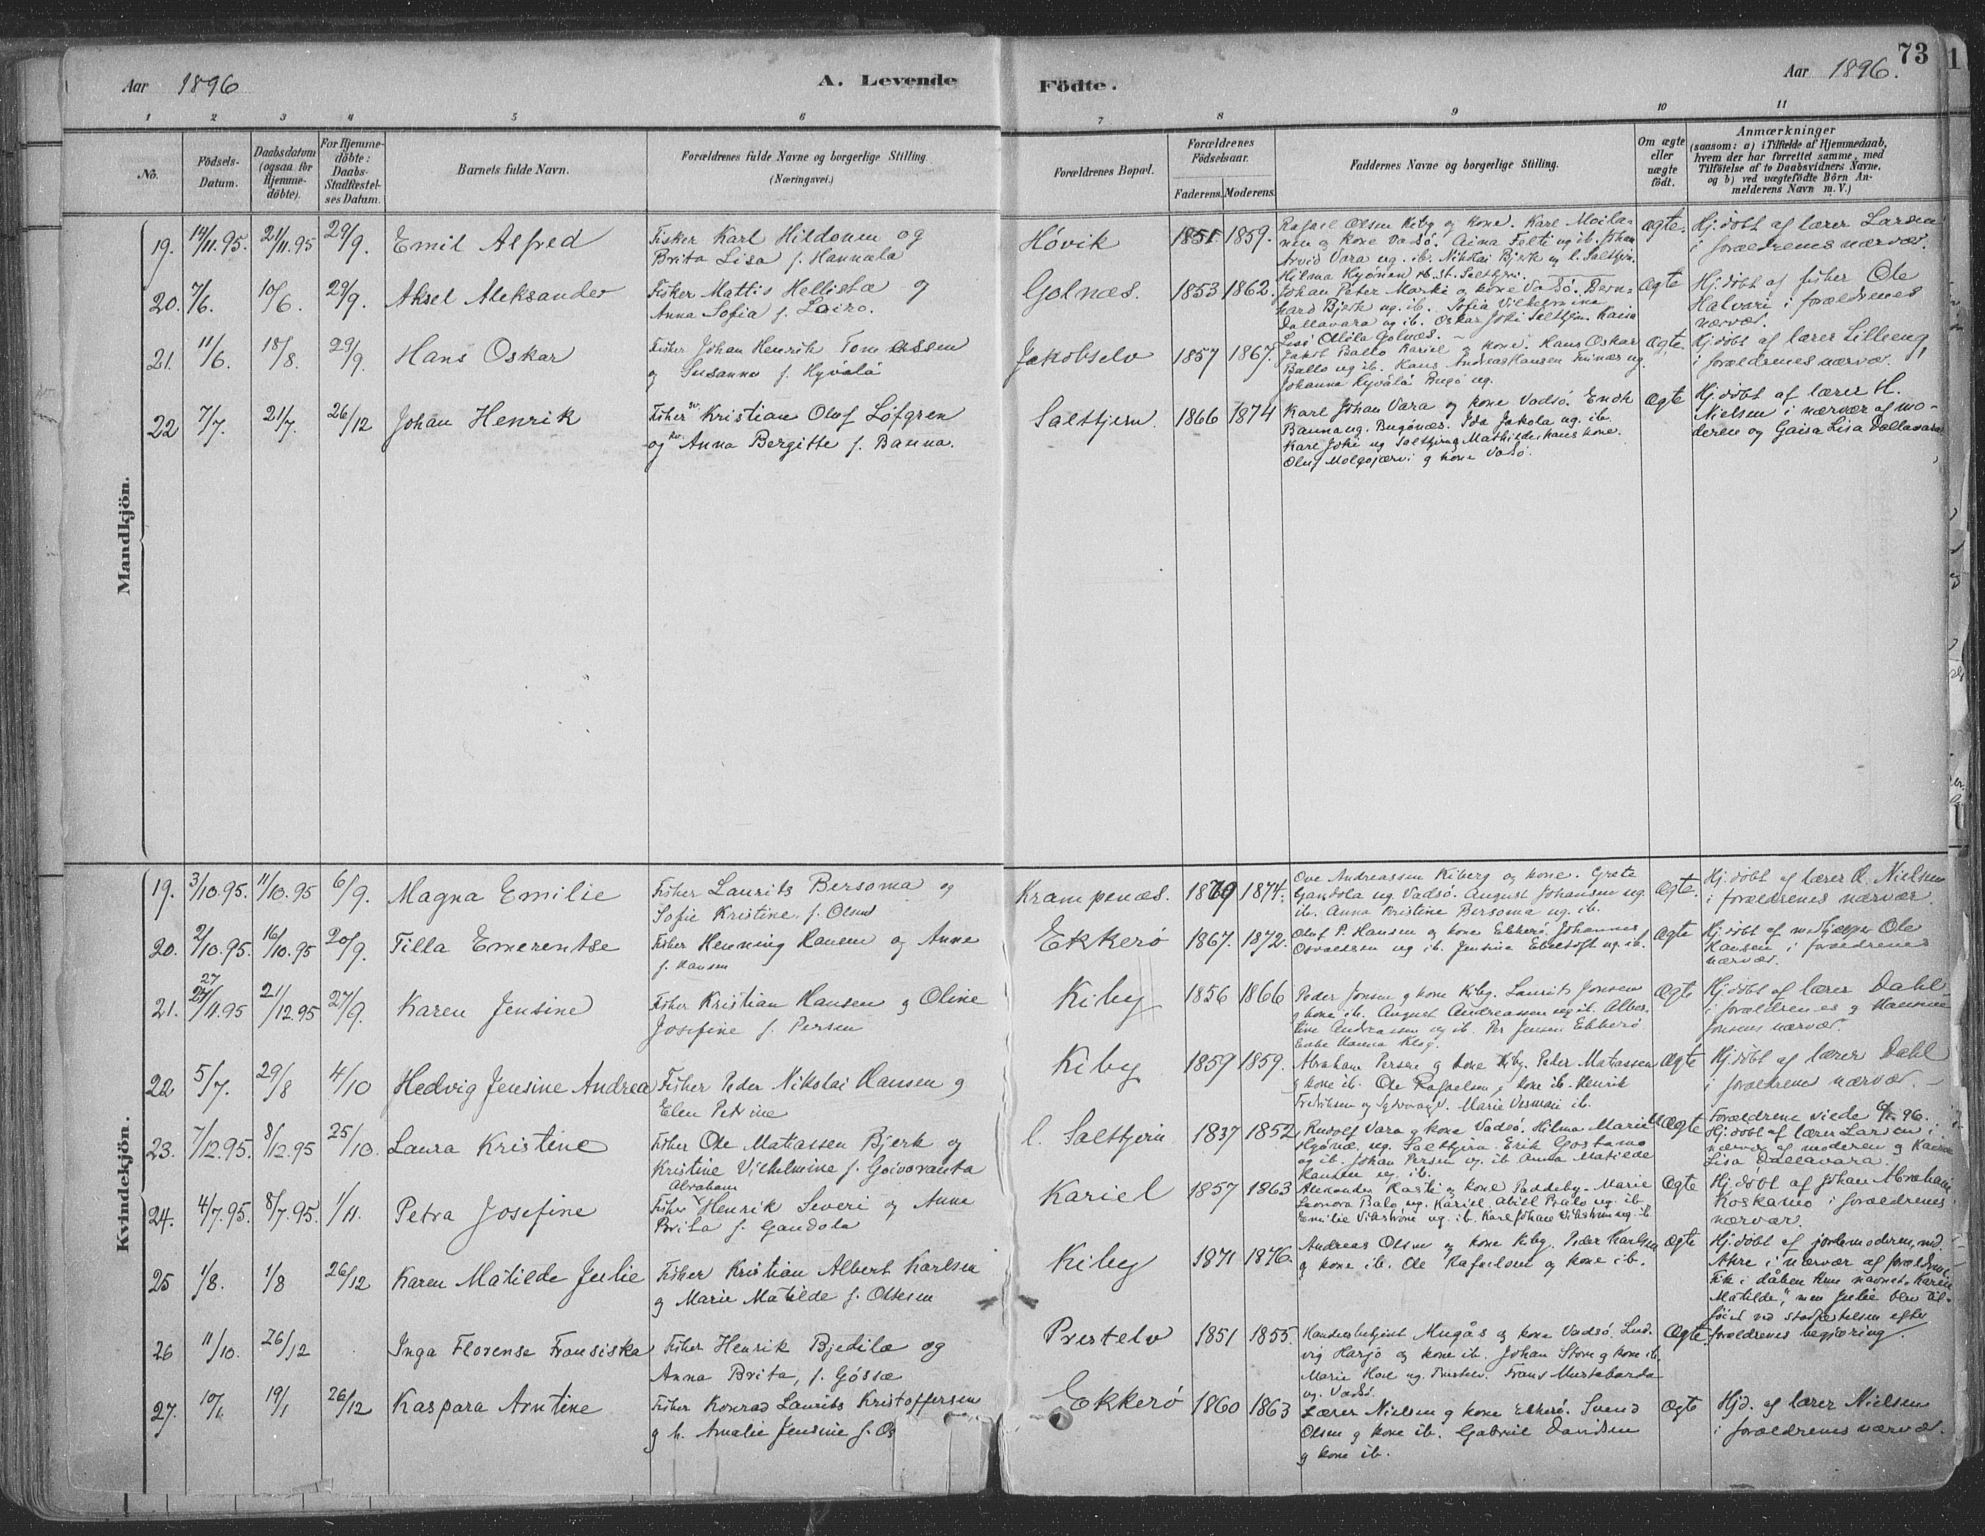 73
Aar 1896
A. Levende
Födte.
Aar 1896.
1 2 3 4 5 6 7 8 9 10 11
No.
Födsels-Datum.
Daabsdatum (ogsaa for Hjemmedöbte).
For Hjemmedöbte: Daabs-Stadfæstelses Datum.
Barnets fulde Navn.
Forældrenes fulde Navne og borgerlige Stilling. (Næringsvei.)
Forældrenes Bopæl.
Forældrenes Födselsaar.
Faderens. Moderens.
Faddernes Navne og borgerlige Stilling.
Om ægte eller uægte födt.
Anmærkninger
(saasom: a) i Tilfælde af Hjemmedaab, hvem der har forrettet samme, med Tilföielse af to Daabsvidners Navne, og b) ved uægtefödte Börn Anmelderens Navn m. V.)
Mandkjön.
19. 14/11.95. 21/11.95 29/9. Emil Alfred
Fisker Karl Hildonen og
Brita Lisa f. Hannala
Høvik 1851 1859.
Rafael Olsen Kiby og kone. Karl Moila-
nen og kone Vadsö. Aina Felti ug. ib. Johan
Arvid Vara ug. ib. Nikkai Bjerk ug l. Saltfjern.
ægte.
Hj. döbt af lærer Larsen
i forældrenes nærvær.
20. 7/6. 10/6. 29/9. Aksel Aleksander
Fisker Mattis Helliska og
Anna Sofia f. Lairo.
Golnæs. 1853 1862.
Johan Peter Marki og kone Vadsö. Bern-
hard Bjerk ug. ib. Sofia Vilhelmina
Dallavara ug ib. Oskar Joki Saltfjern. Kaisa
Lisa Ollila Golnæs.
ægte
Hj. döbt af fisker Ole
Halvari i forældrenes
nærvær.
21. 11/6. 18/8. 29/9. Hans Oskar
Fisker Johan Henrik Tomassen
og Susanna f. Hyvälä
Jakobselv 1857 1867.
Jakob Ballo Kariel og kone. Hans Oskar
Ballo ug ib. Hans Andreas Hansen ug.
Johanna Hyvälä Bugö ug.
ægte.
Hj. döbt af lærer Lilleeng,
i forældrenes nærvær.
22 7/7. 21/7. 26/12 Johan Henrik
Fisker Kristian Oluf Löfgren
og Anna Bergitte f. Banna.
Saltfjern. 1866 1874
Karl Johan Vara og kone Vadsö.
Banna ug. Bugönæs. Ida Jakola ug. ib.
Karl Joki ug Saltfjern og Mathilde hans kone.
Oluf Molgojærvi g kone Vadsö.
ægte
Hj. döbt af lærer H.
Nielsen i nærvær af mo-
deren og Gaisa Lisa Dallavara
Kvindekjön.
19. 3/10.95. 11/10.95 6/9. Magna Emilie
Fisker Laurits Bersoma og
Sofie Kristine f. Olsen
Krampenæs. 1869 1874.
Ove Andreassen Kiberg og kone. Grete
Gandola ug. Vadsö. August Johansen ug.
ib. Anna Kristine Bersoma ug. ib.
Ægte.
Hj. döbt af lærer H. Nielsen
i forældrenes nærvær.
20. 2/10.95. 16/10.95 20/9. Tilla Emerentse
Fisker Henning Hansen og Anna
f. Hansen
Ekkerö 1867. 1872.
Oluf P. Hansen og kone Ekkerö. Johannes
Osvaldsen ug ib. Jensine Ebeltoft ug. ib.
Ægte
Hj. döbt af Ole
Hansen i forældrenes
nærvær.
21. 27/11.95 21/12.95 27/9. Karen Jensine
Fisker Kristian Hansen g Oline
Josefine f. Persen
Kiby 1856 1866
Peder Jensen g kone Kiby. Laurits Jensen
g kone ib. August Andreassen ug ib. Alber-
tine Andreassen ug ib. Per Jensen Ekkerö
Enke Hanna Klog.
Ægte
Hj. döbt af lærer Dahl
i forældrenes g Hanna
Jensens nærvær.
22 5/7. 29/8 4/10 Hedvig Jensine Andrea
Fisker Peder Nikolai Hansen g
Elen Petrine
Kiby 1859 1859.
Abraham Persen g kone Kiby. Peter Matiassen
g kone ib. Ole Rafaelsen g kone ib. Henrik
Fredriksen og. Marie Vesmaa ib.
Ægte
Hj. döbt af lærer Dahl
i forældrenes nærvær.
23. 7/12.95. 8/12.95 25/10. Laura Kristine
Fisker Ole Matiassen Bjerk og
Kristine Vilhelmine f. Goivoranta
l. Saltfjern 1837 1852
Rudolf Vara g kone Vadsö. Hilma Marie
ug. Saltfjern. Erik Gostamo
ug ib. Johan Persen ug. ib. Anna Matilde
Hansen ug. ib.
Uægte
Forældrene viede 96.
Hj. döbt af lærer Larsen i
nærvær af moderen g Kaisa
Lisa Dallavara.
24. 4/7.95. 8/7.95. 1/11. Petra Josefine
Abraham
Fisker Henrik Severi og Anna
Brita f. Gandola
Kariel 1857 1863
Alexander Kasti og kone Paddeby. Marie
Leonora Balo ug. Kariel. Abiel Balo ug. ib
Emilie Vikström ug. ib. Karl Johan Vikström ug. ib.
Ægte
Hj. döbt af Johan Abraham
Koskamo i forældrenes
nærvær.
25 1/8. 1/8 26/12 Karen Matilde Julie
Fisker Kristian Albert Karlsen
g Marie Matilde f. Ottesen
Kiby 1871 1876.
Andreas Olsen og kone Kiby. Peder Karlsen
g kone ib. Ole Rafaelsen g kone ib.
ægte
Hj. döbt af jordemoderen, mad.
Akre i nærvær af forældrene.
Fik i dåben kun navnet „Karen
Matilde," men Julie blev til-
föiet ved stadfæstelsen efter
forældrenes begjæring
26 11/10. 26/12 Inga Florense Fransiska
Fisker Henrik Bjedilæ og
Anna Brita, f. Gössæ
Prestelv 1851 1855.
Handelsbetjent Mugås g kone Vadsö. Lud-
vig Harjo og kone ib. Johan Store g kone ib.
Marie Hoel ug. Prestelv. Frans Mustabarda
ug. Vadsö.
Ægte
27. 10/6 19/1 26/12 Kaspara Arntine
Fisker Konrad Laurits Kristoffersen
g h. Amalie Jensine f. Os
Ekkerö 1860 1863
Lærer Nielsen g kone Ekkerö. Svend
Olsen g kone ib. Gabriel Davidsen
g kone ib.
ægte
Hjd. af lærer Nielsen
i forældrenes nærvær.